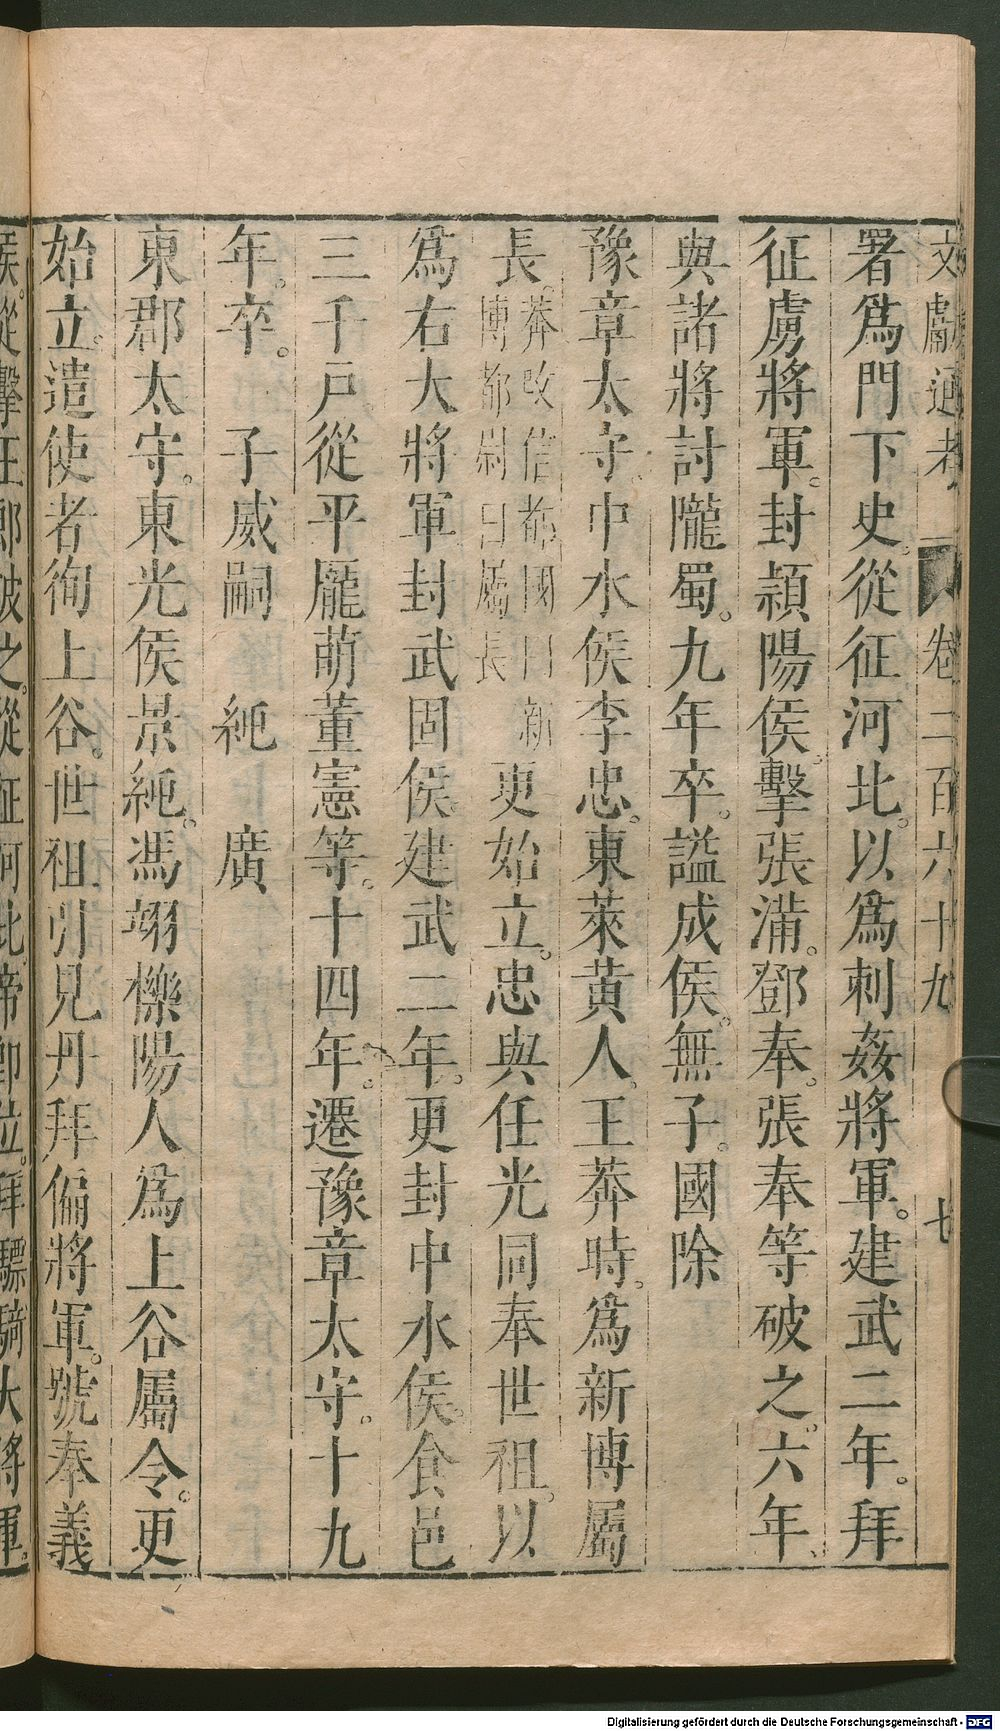 文獻通考 卷二百六十九 七
署爲門下史。從征河北。以爲刺姦將軍。建武二年。拜
征虜將軍。封潁陽侯。擊張滿。鄧奉。張奉等破之。六年、
與諸將討隴蜀。九年卒。諡成侯。無子。國除
豫章太守。中水侯李忠。東萊黃人。王莽時。爲新博屬
長。莽改信都國曰新博都尉曰屬長 更始立。忠與任光同奉世祖。以
爲右大將軍封武固侯。建武二年。更封中水侯。食邑
三千戸從平龐萌董憲等。十四年。遷豫章太守。十九
年。卒。 子威嗣 純 廣
東郡太守。東光侯景純。馮翊櫟陽人爲上谷屬令。更
始立。遣使者徇上谷。世祖引見丹拜偏將軍。號奉義
侯。從擊王郎破之。從征河北帝即位。拜驃騎大將軍。
Digitalisierung gefördert durch die Deutsche Forschungsgemeinschaft - DFG